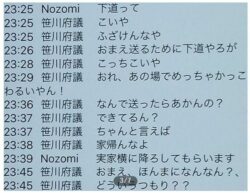 23:25 Nozomi 下道って
23:25 笹川府議 こいや
23:25 笹川府議 ふざけんなや
23:26 笹川府議 おまえ送るために下道やろが
23:28 笹川府議 こっちこいや
23:29 笹川府議 おれ、あの場でめっちゃかっこ
わるいやん!
23:36 笹川府議 なんで送ったらあかんの?
23:37 笹川府議 できてるん?
23:37 笹川府議 ちゃんと言えば
23:38 笹川府議 家帰んなよ
23:39 Nozomi 実家横に降ろしてもらいます
23:45 笹川府議 おまえ、ほんまになんなん?、
23:45 笹川府議 どういうつもり??